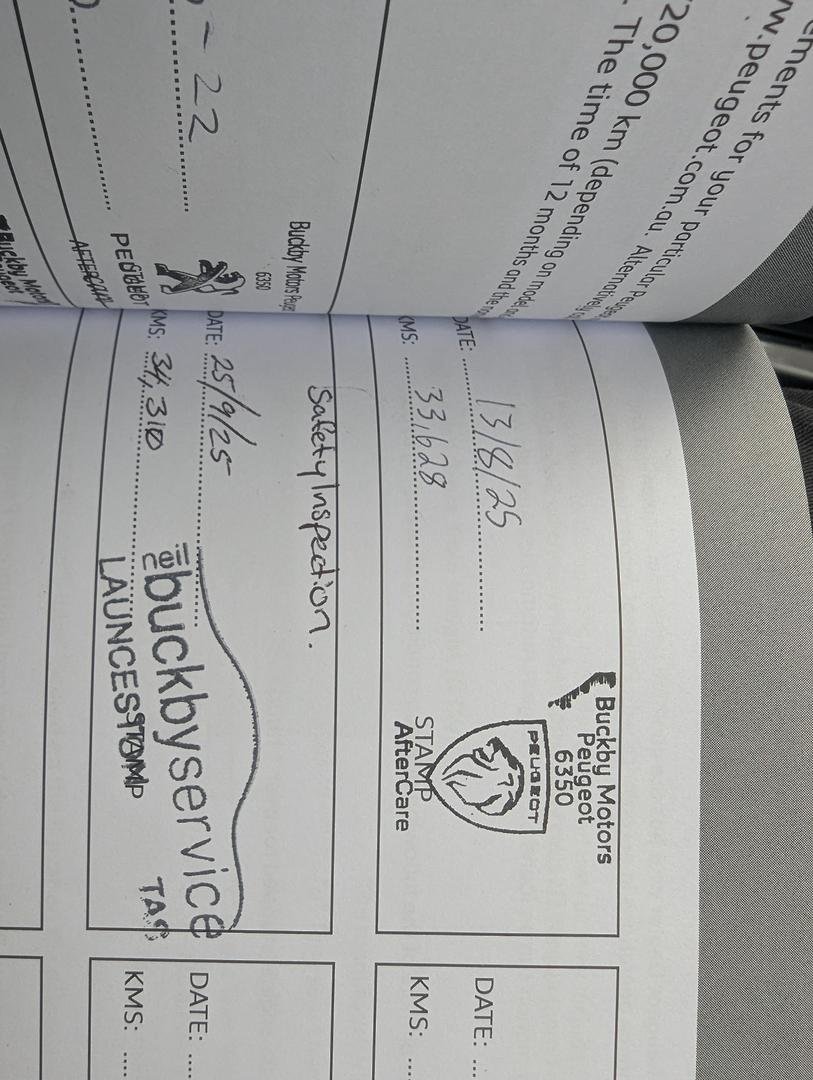 ments for your particular Peugeo
w.peugeot.com.au. Alternatively
20,000 km (depending on model
. The time of 12 months and the
- 22
Buckby Motors
6350
PEUGEOT
AFTERCARE
Buckby Motors
DATE: 13/8/25
KMS: 33,628
Buckby Motors
Peugeot
6350
PEUGEOT
STAMP
AfterCare
Safety Inspection.
DATE: 25/9/25
KMS: 34,310
the buckbyservice
LAUNCESTON TAS
STAMP
DATE:
KMS:
DATE:
KMS: